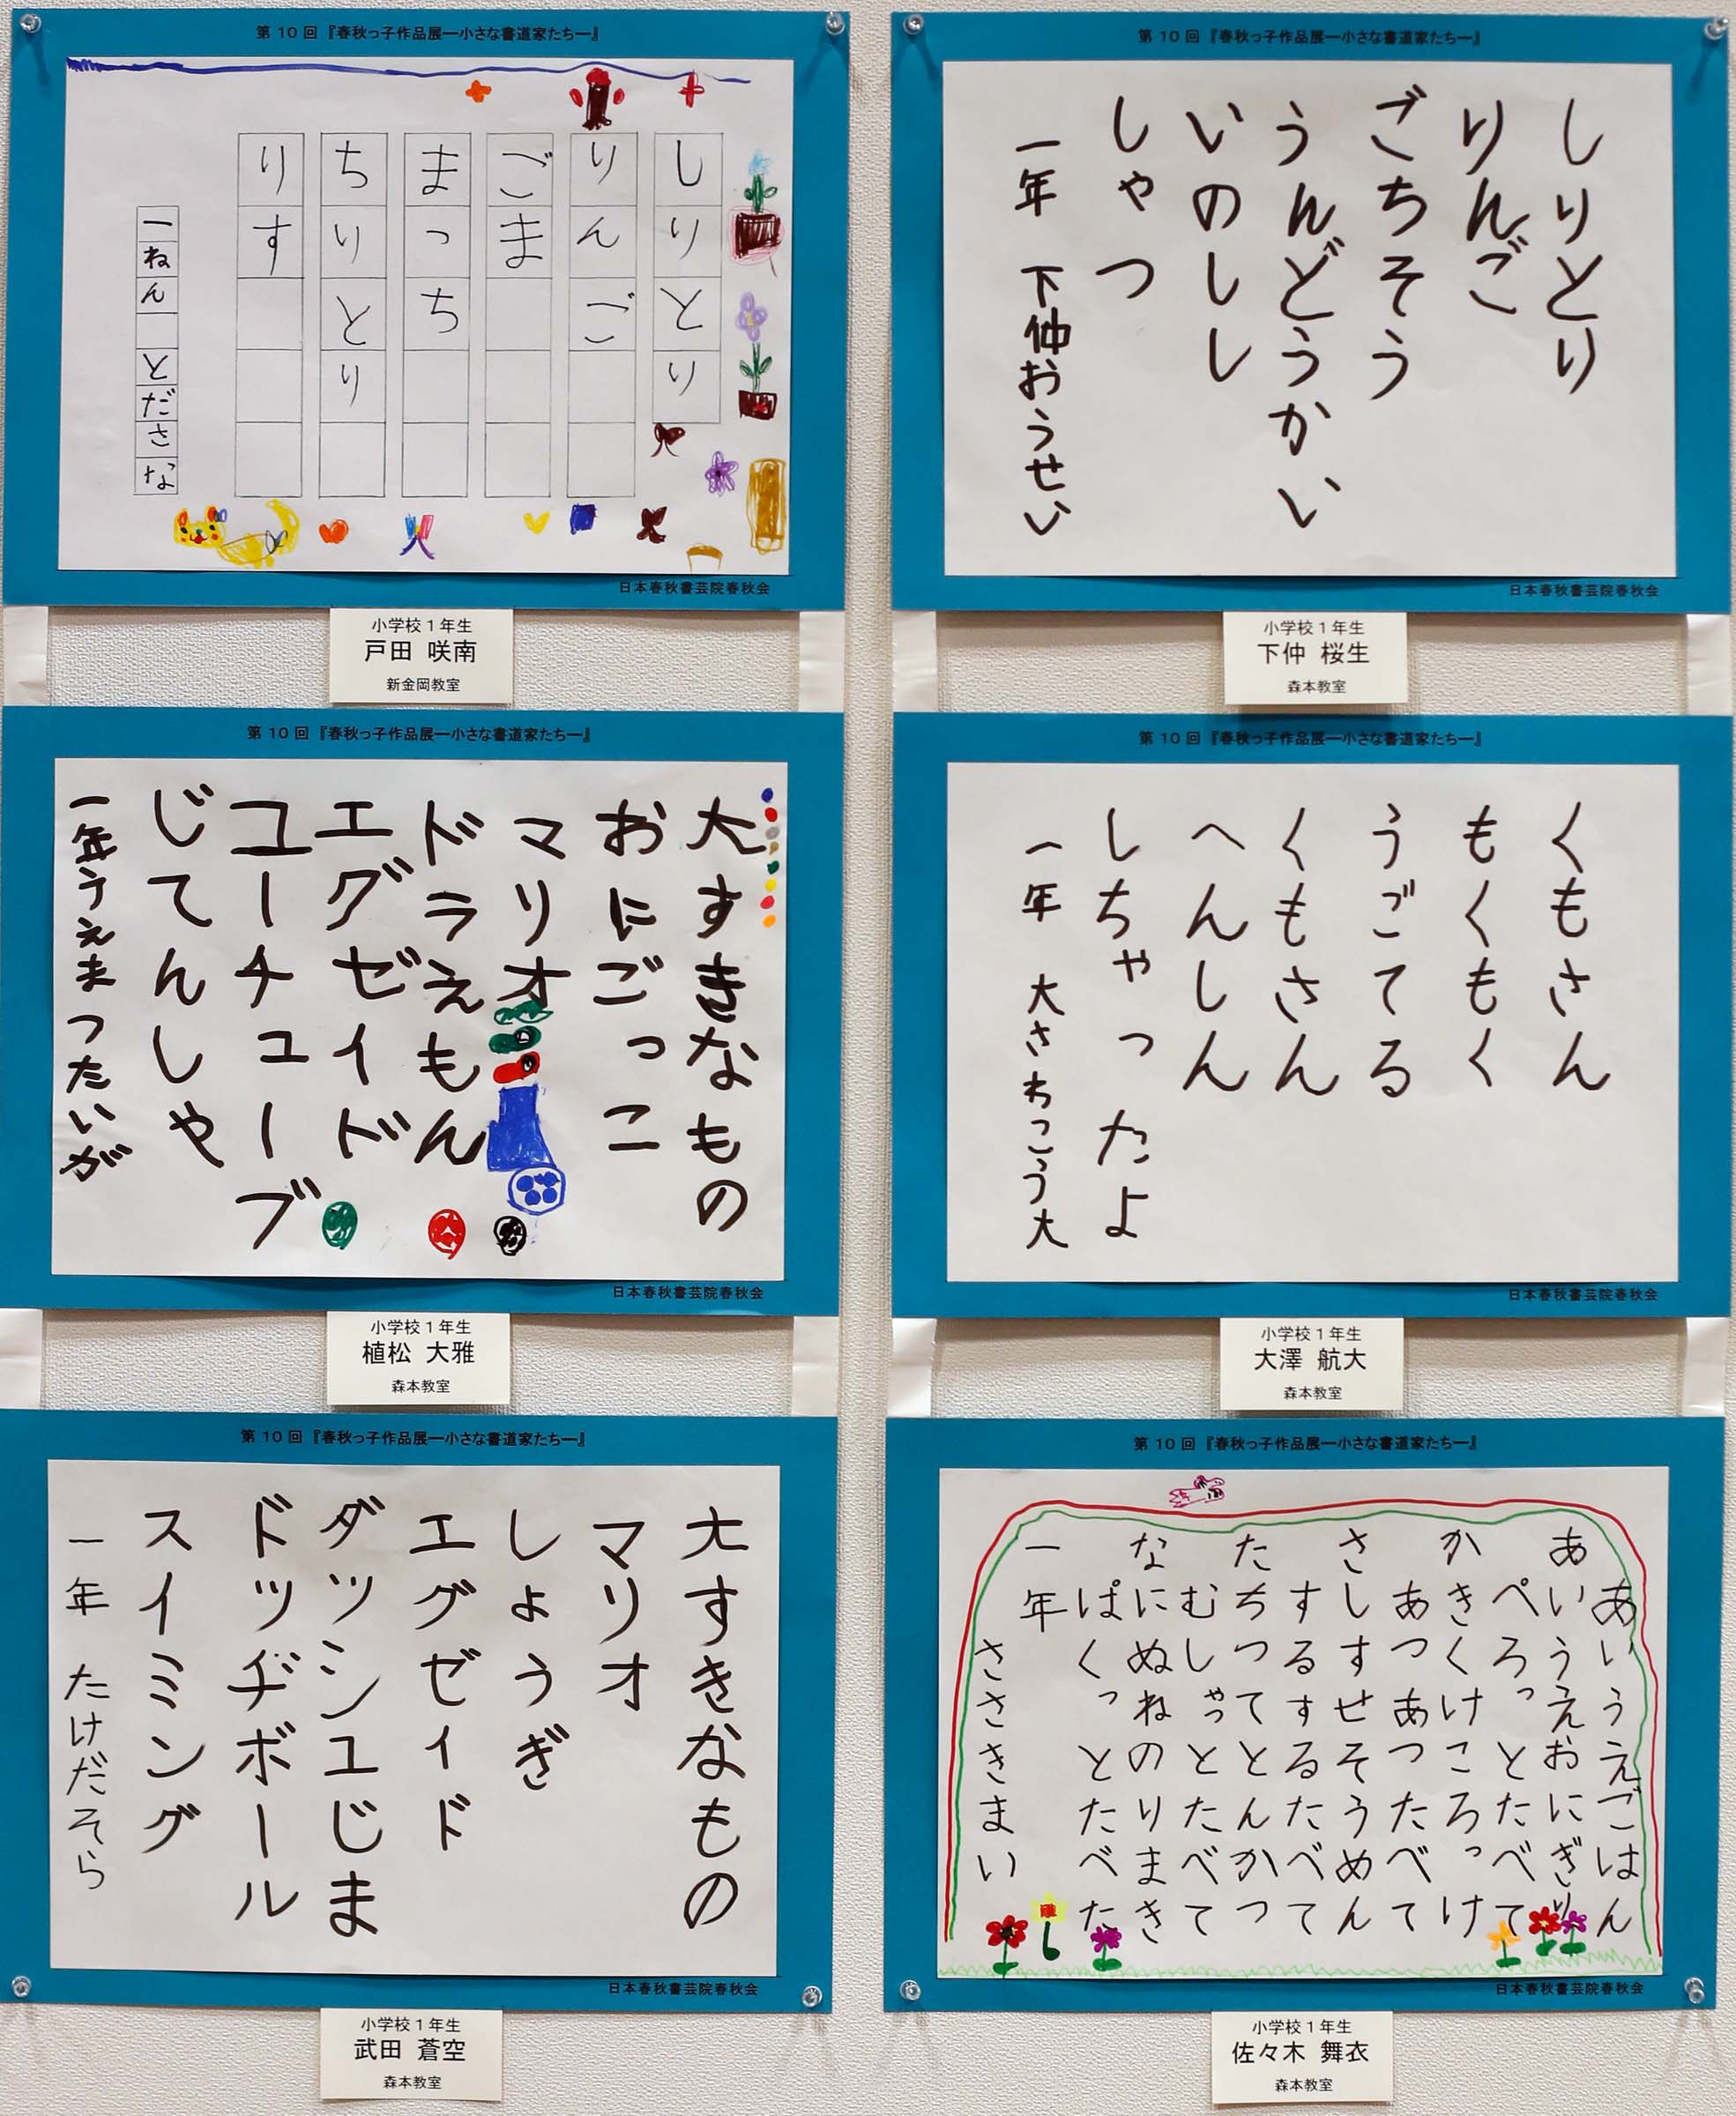 第10回『春秋っ子作品展―小さな書道家たち―』
しりとり
りんご
ごま
まっち
ちりとり
りす
一ねん とださな
日本春秋書芸院春秋会
小学校1年生
戸田 咲南
新金岡教室
第10回『春秋っ子作品展―小さな書道家たち―』
しりとり
りんご
ごちそう
うんどうかい
いのしし
しゃつ
一年 下仲おうせい
日本春秋書芸院春秋会
小学校1年生
下仲 桜生
森本教室
第10回『春秋っ子作品展―小さな書道家たち―』
大すきなもの
おにごっこ
マリオ
ドラえもん
エグゼイド
ユーチューブ
じてんしゃ
一年うえまつたいが
日本春秋書芸院春秋会
小学校1年生
植松 大雅
森本教室
第10回『春秋っ子作品展―小さな書道家たち―』
くもさん
もくもく
うごてる
くもさん
へんしん
しちゃったよ
一年 大さわこう大
日本春秋書芸院春秋会
小学校1年生
大澤 航大
森本教室
第10回『春秋っ子作品展―小さな書道家たち―』
大すきなもの
マリオ
しょうぎ
エグゼイド
ダッシュじま
ドッヂボール
スイミング
一年 たけだそら
日本春秋書芸院春秋会
小学校1年生
武田 蒼空
森本教室
第10回『春秋っ子作品展―小さな書道家たち―』
あいうえごはん
あいうえおにぎり
ぺろっとたべて
かきくけころっけ
あつあつたべて
さしすせそうめん
するするたべて
たちつてとんかつ
むしゃっとたべて
なにぬねのりまき
ぱくっとたべた
一年
ささきまい
日本春秋書芸院春秋会
小学校1年生
佐々木 舞衣
森本教室